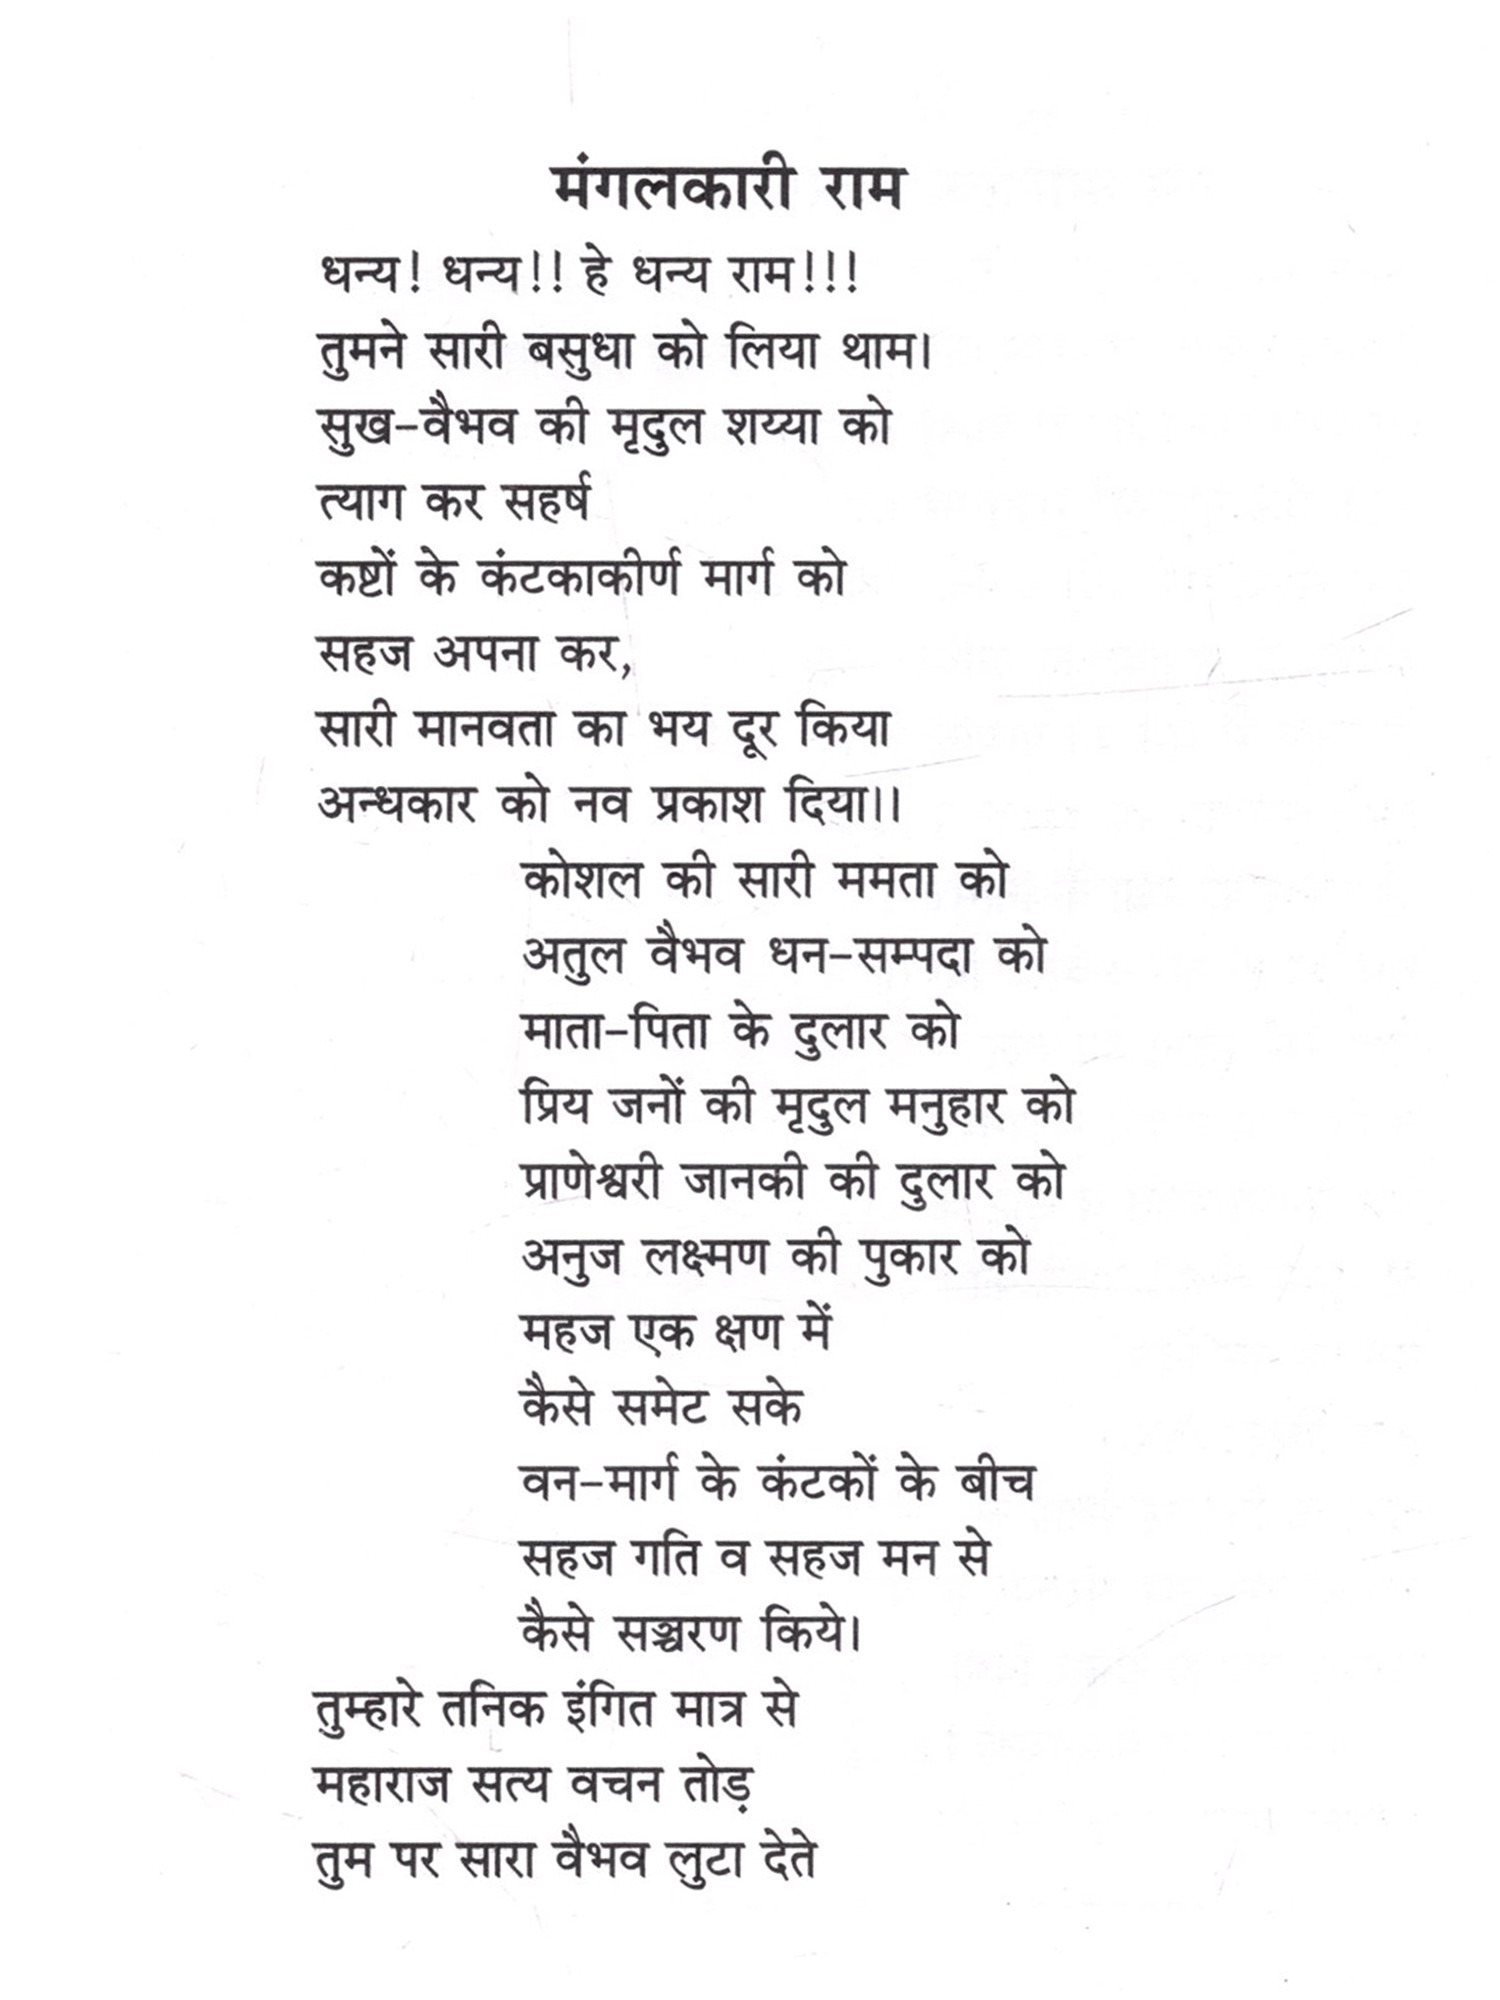 मंगलकारी राम
धन्य! धन्य!! हे धन्य राम!!!
तुमने सारी बसुधा को लिया थाम।
सुख-वैभव की मृदुल शय्या को
त्याग कर सहर्ष
कष्टों के कंटकाकीर्ण मार्ग को
सहज अपना कर,
सारी मानवता का भय दूर किया
अन्धकार को नव प्रकाश दिया।।
कोशल की सारी ममता को
अतुल वैभव धन-सम्पदा को
माता-पिता के दुलार को
प्रिय जनों की मृदुल मनुहार को
प्राणेश्वरी जानकी की दुलार को
अनुज लक्ष्मण की पुकार को
महज एक क्षण में
कैसे समेट सके
वन-मार्ग के कंटकों के बीच
सहज गति व सहज मन से
कैसे सञ्चरण किये।
तुम्हारे तनिक इंगित मात्र से
महाराज सत्य वचन तोड़
तुम पर सारा वैभव लुटा देते